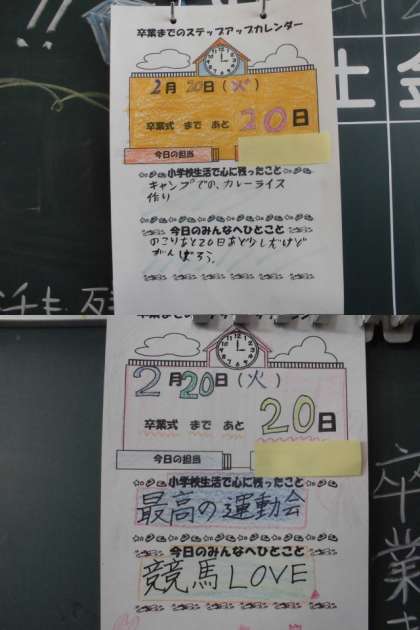 卒業までのステップアップカレンダー
2月 20日(火)
卒業式 まで あと 20日
今日の担当
小学校生活で心に残ったこと
キャンプでの、カレーライス
作り
今日のみんなへひとこと
のこりあと20日あと少しだけど
がんばろう。
土 金
活も 残
2月20日(火)
卒業式 まで あと 20日
今日の担当
小学校生活で心に残ったこと
最高の運動会
今日のみんなへひとこと
競馬LOVE
卒
業